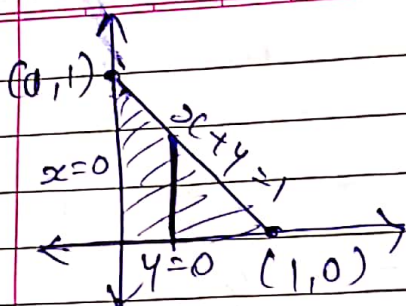 (0,1)
x+y=1
x=0
y=0 (1,0)